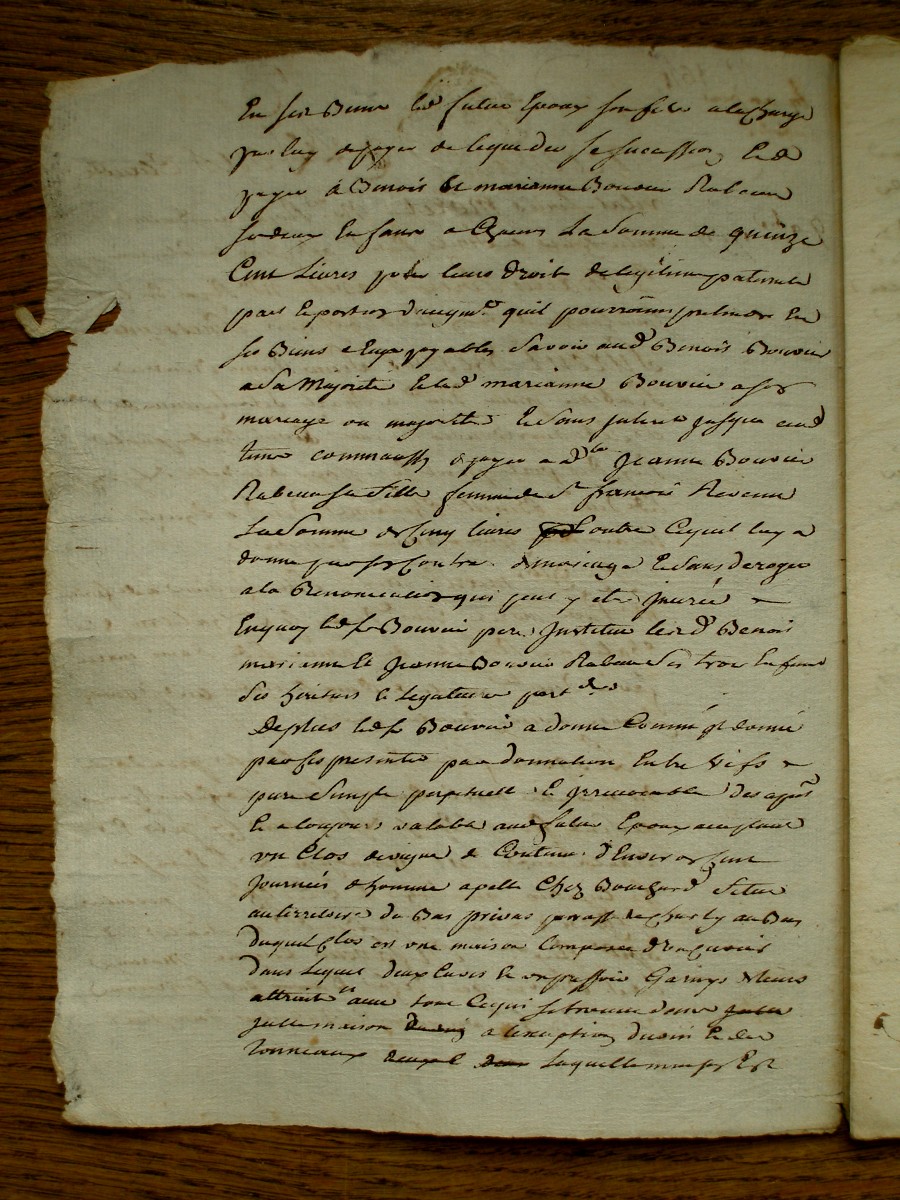 En ses Biens led futur Epoux son fils a la Charge
par luy de payer de lequeder sa sucession et de
payer à Benois & marianne Bouvier Rabeau
ses deux Enfans a Chacun La Somme de quinze
Cent Livres pour leurs droit de legitime paternelle
part et portion d'augmt quil pourroint pretendre En
ses Biens & Eux payables Savoir aud Benois Bouvier
a Sa Majorité et lad marianne Bouvier a son
mariage ou majorité Et Sans interet jusques aud
tems comm'aussy de payer a dlle Jeanne Bouvier
Rabeau sa fille femme de Sr francois
La Somme de Cinq livres outre Ce quil luy a
donné par son Contra de mariage Et Sans deroger
a la Renonciation qui peut y etre
Enquoy led Sr Bouvier pere Institue lesd Benois
marianne et Jeanne Bouvier Rabeau Ses trois Enfans
Ses heritiers & Legataires part
De plus led Sr Bouvier a donné Comme il donne
par ses presentes par donnation Entre vifs
pure Simple perpetuelle & irrevocable des apresent
Et a toujours valable aud futur Epoux acceptant
un Clos de vigne de Contenu d'Environ
Journées d'homme apellé Chez Bouchard Situé
au territoire du Bas privas parroisse de Charly au Bas
duquel Clos est une maison Composée d'un Cuvier
dans Lequel deux Cuves et un pressoir Garnys de leurs
attraits avec tout Cequi se trouve dans
maison a l'exception du vin et des
Tonneaux Laquelle maison Est